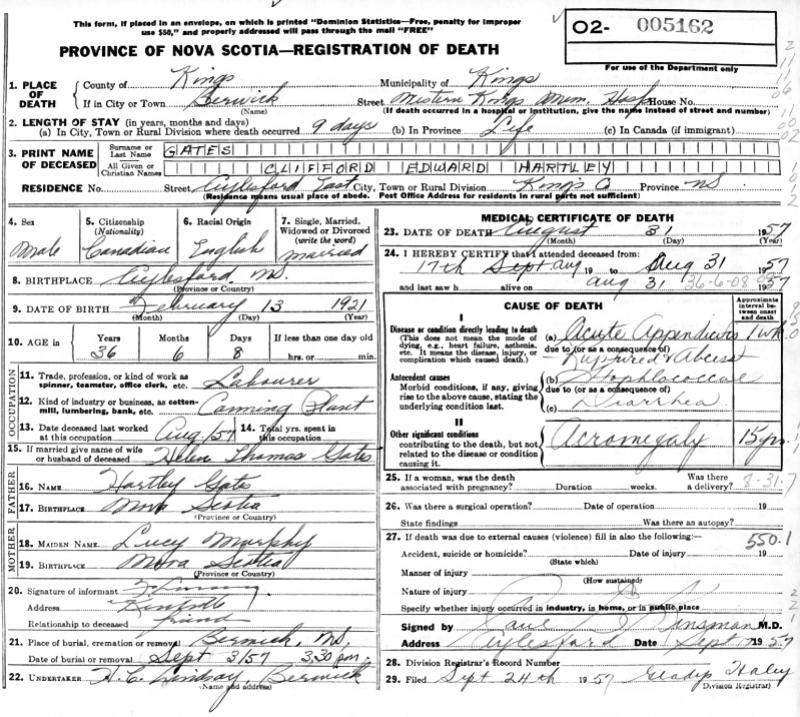 This form, if placed in an envelope, on which is printed "Dominion Statistics—Free, penalty for improper
use $50," and properly addressed will pass through the mail "FREE"
02- 005162
For use of the Department only
PROVINCE OF NOVA SCOTIA—REGISTRATION OF DEATH
1. PLACE OF DEATH County of Kings Municipality of Kings
If in City or Town Berwick Street Western Kings Mem. Hosp House No.
(Name) (If death occurred in a hospital or institution, give the name instead of street and number)
2. LENGTH OF STAY (in years, months and days)
(a) In City, Town or Rural Division where death occurred 9 days (b) In Province Life (c) In Canada (if immigrant)
3. PRINT NAME OF DECEASED Surname or Last Name GATES
All Given or Christian Names CLIFFORD EDWARD HARTLEY
RESIDENCE No. Street Aylesford East City, Town or Rural Division Kings Co Province NS
(Residence means usual place of abode. Post Office Address for residents in rural parts not sufficient)
4. Sex Male
5. Citizenship (Nationality) Canadian
6. Racial Origin English
7. Single, Married, Widowed or Divorced (write the word) married
8. BIRTHPLACE Aylesford NS.
(Province or Country)
9. DATE OF BIRTH February 13 1921
(Month) (Day) (Year)
10. AGE in Years 36 Months 6 Days 8 If less than one day old hrs. or min.
OCCUPATION
11. Trade, profession, or kind of work as spinner, teamster, office clerk, etc. Labourer
12. Kind of industry or business, as cotton-mill, lumbering, bank, etc. Canning Plant
13. Date deceased last worked at this occupation Aug/57 14. Total yrs. spent in this occupation
15. If married give name of wife or husband of deceased Helen Thomas Gates
FATHER
16. Name Hartley Gates
17. BIRTHPLACE Nova Scotia
(Province or Country)
MOTHER
18. MAIDEN NAME Lucy Murphy
19. BIRTHPLACE Nova Scotia
(Province or Country)
20. Signature of informant
Address Kentville
Relationship to deceased friend
21. Place of burial, cremation or removal Berwick, NS.
Date of burial or removal Sept 3/57 3.30 pm.
22. UNDERTAKER H.C. Lindsay, Berwick
(Name and address)
MEDICAL CERTIFICATE OF DEATH
23. DATE OF DEATH August 31 1957
(Month) (Day) (Year)
24. I HEREBY CERTIFY that I attended deceased from:
17th Sept Aug 19 to Aug 31 1957
and last saw h alive on Aug 31 36-6-08 1957
CAUSE OF DEATH
Approximate interval between onset and death
I
Disease or condition directly leading to death
(This does not mean the mode of dying, e.g., heart failure, asthenia, etc. It means the disease, injury, or complication which caused death.)
(a) Acute Appendicitis 1 wk
due to (or as a consequence of)
Ruptured & Abcess
Antecedent causes
Morbid conditions, if any, giving rise to the above cause, stating the underlying condition last.
(b)
due to (or as a consequence of)
Diarrhea
(c)
II
Other significant conditions contributing to the death, but not related to the disease or condition causing it.
Acromegaly 15 yrs.
25. If a woman, was the death associated with pregnancy? Duration weeks. Was there a delivery? 8-31-7
26. Was there a surgical operation? Date of operation 19
State findings Was there an autopsy?
27. If death was due to external causes (violence) fill in also the following: 550.1
Accident, suicide or homicide? Date of injury 19
(State which)
Manner of injury
(How sustained)
Nature of injury
Specify whether injury occurred in industry, in home, or in public place
Signed by Kinsman M.D.
Address Aylesford Date Sept 1957
28. Division Registrar's Record Number
29. Filed Sept 24th 1957 Gladys Haley
Division Registrar